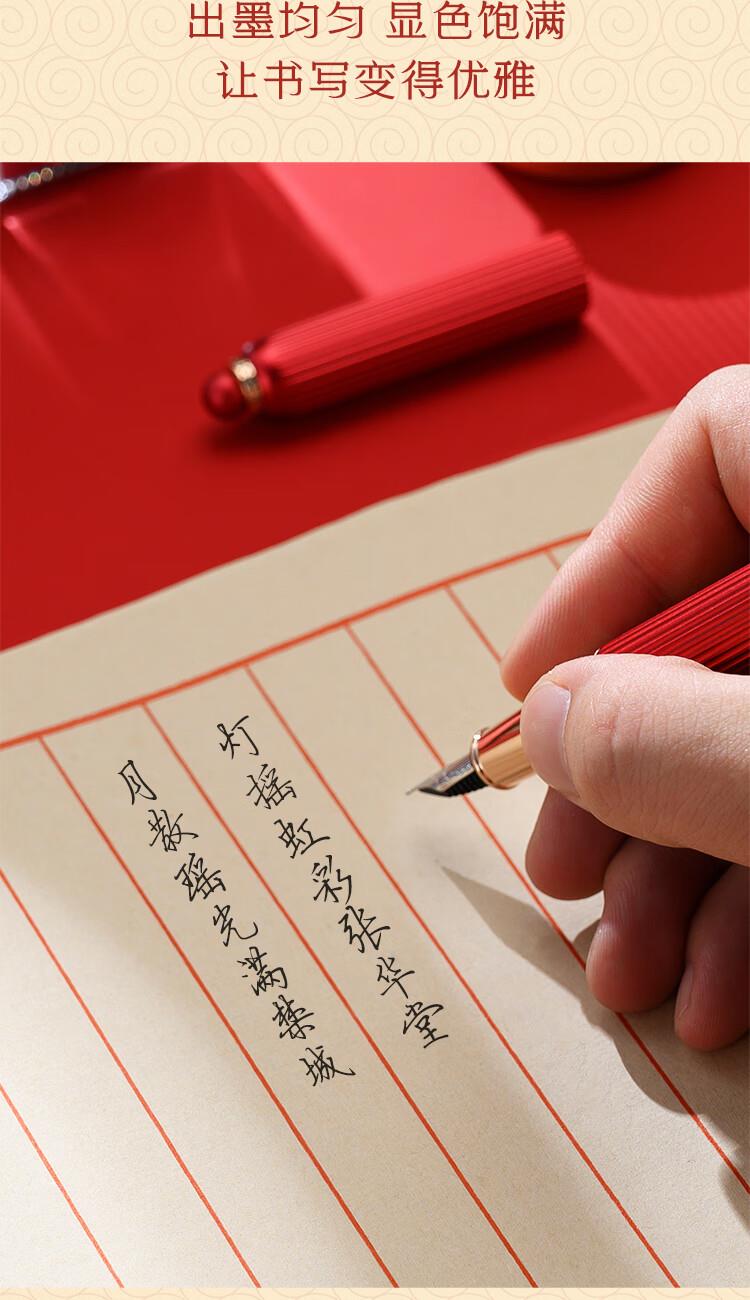 出墨均匀 显色饱满
让书写变得优雅
灯摇虹彩张华堂
月散瑶光满禁城